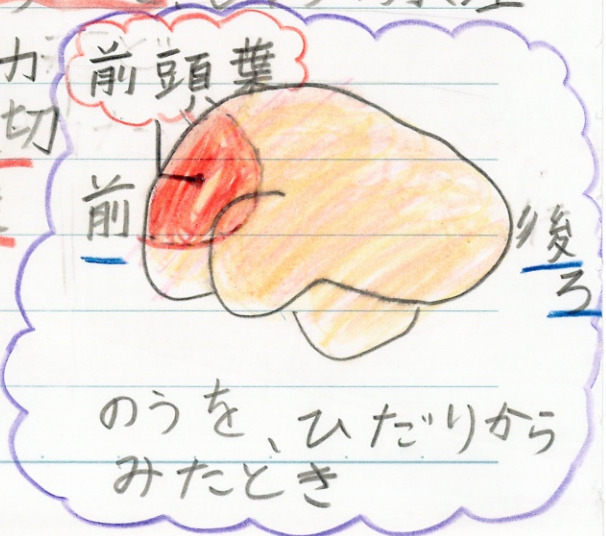 カ
切
前頭葉
前
後
ろ
のうを、ひだりから
みたとき